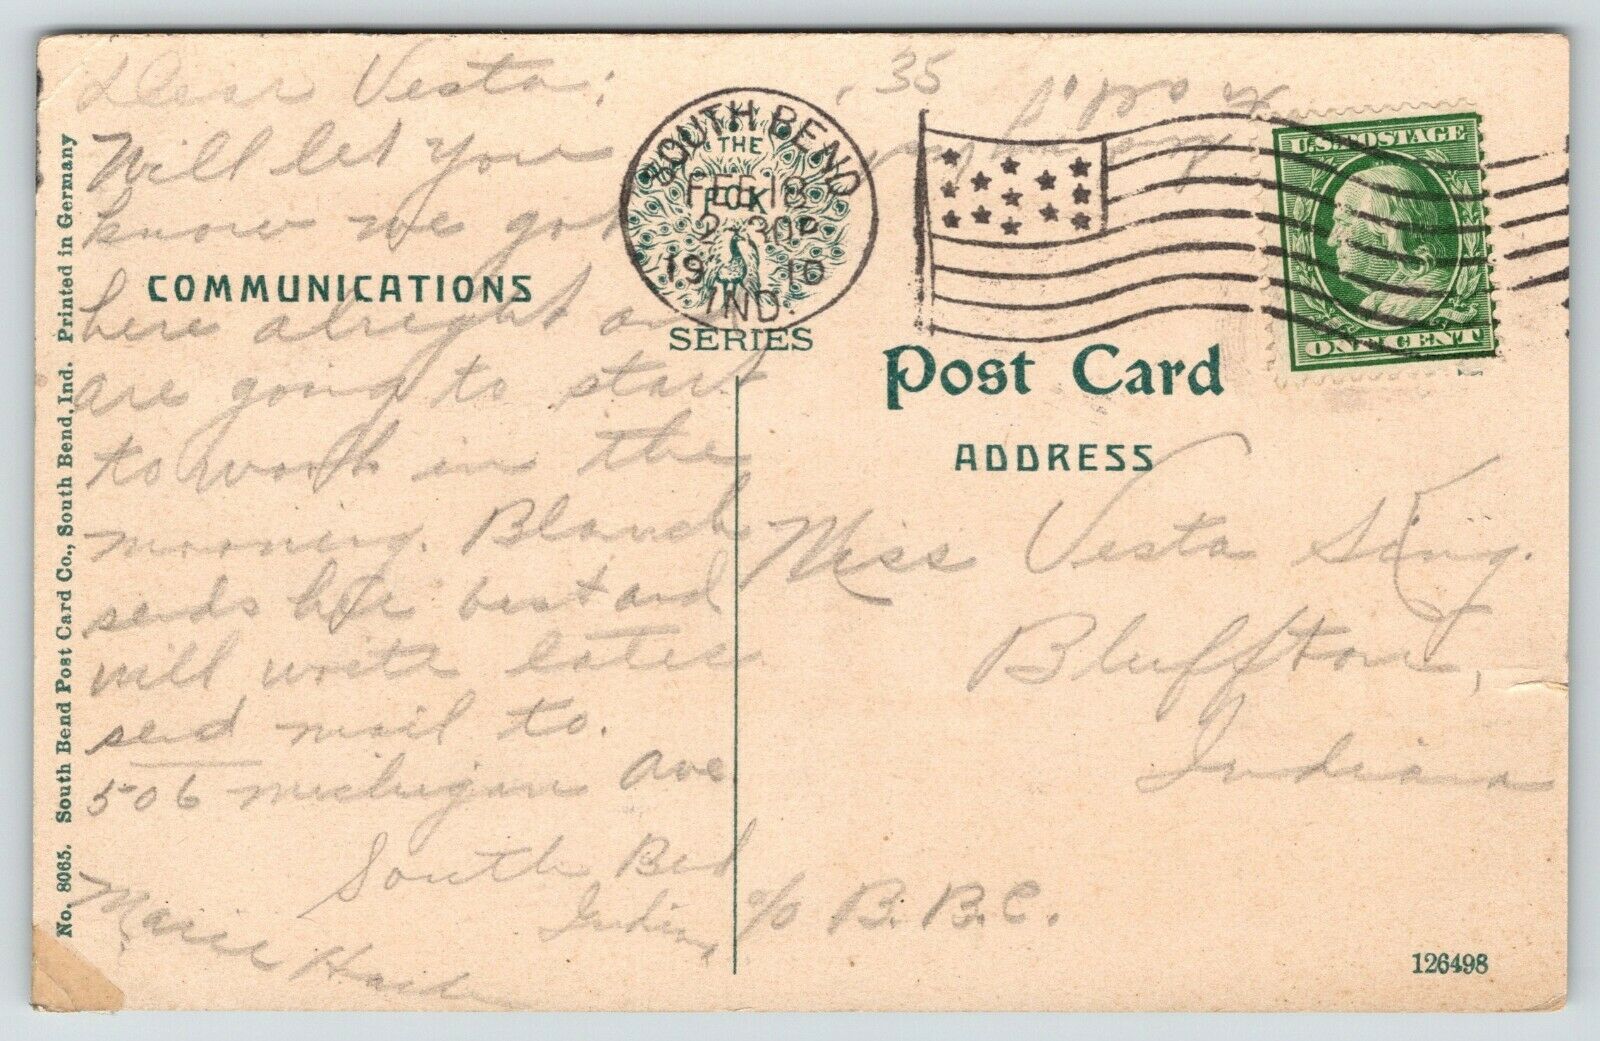 Dear Vesta;
Will let you
know we got
here alright an
are going to start
to work in the
morning. Blanch
sends her best and
will write later
send mail to.
506 Michigan Ave
South Bend
Indiana
Marie
COMMUNICATIONS
No. 8065. South Bend Post Card Co., South Bend, Ind. Printed in Germany
.35
SOUTH BEND
FEB
2 30P
19 10
IND.
THE
SERIES
U.S. POSTAGE
ONE CENT
Post Card
ADDRESS
Miss Vesta King.
Bluffton,
Indiana
c/o B. B. C.
126498